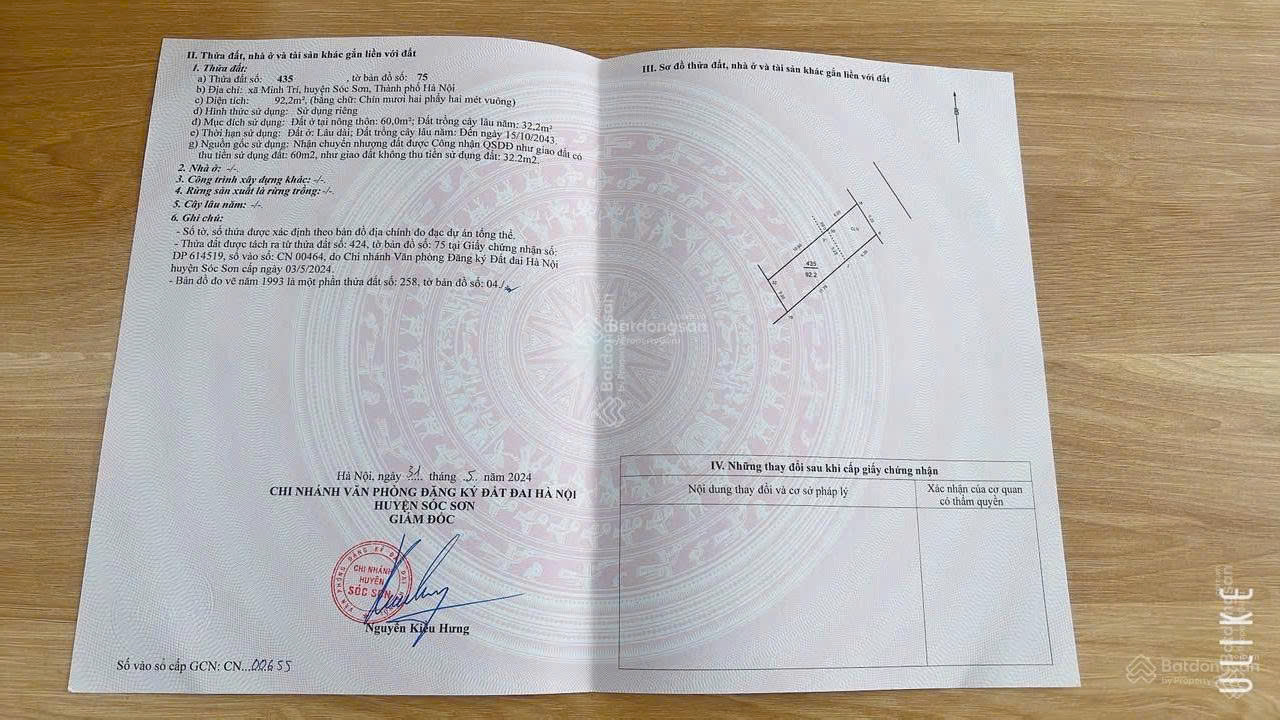 II. Thửa đất, nhà ở và tài sản khác gắn liền với đất
1. Thửa đất:
a) Thửa đất số: 435 , tờ bản đồ số: 75
b) Địa chỉ: xã Minh Trí, huyện Sóc Sơn, Thành phố Hà Nội
c) Diện tích: 92,2m², (bằng chữ: Chín mươi hai phẩy hai mét vuông)
d) Hình thức sử dụng: Sử dụng riêng
đ) Mục đích sử dụng: Đất ở tại nông thôn: 60,0m²; Đất trồng cây lâu năm: 32,2m²
e) Thời hạn sử dụng: Đất ở: Lâu dài; Đất trồng cây lâu năm: Đến ngày 15/10/2043.
g) Nguồn gốc sử dụng: Nhận chuyển nhượng đất được Công nhận QSDĐ như giao đất có
thu tiền sử dụng đất: 60m2, như giao đất không thu tiền sử dụng đất: 32.2m2.
2. Nhà ở: -/-.
3. Công trình xây dựng khác: -/-.
4. Rừng sản xuất là rừng trồng: -/-.
5. Cây lâu năm: -/-.
6. Ghi chú:
- Số tờ, số thửa được xác định theo bản đồ địa chính đo đạc dự án tổng thể.
- Thửa đất được tách ra từ thửa đất số: 424, tờ bản đồ số: 75 tại Giấy chứng nhận số:
DP 614519, số vào sổ: CN 00464, do Chi nhánh Văn phòng Đăng ký Đất đai Hà Nội
huyện Sóc Sơn cấp ngày 03/5/2024.
- Bản đồ đo vẽ năm 1993 là một phần thửa đất số: 258, tờ bản đồ số: 04./
Hà Nội, ngày 31 tháng 5 năm 2024
CHI NHÁNH VĂN PHÒNG ĐĂNG KÝ ĐẤT ĐAI HÀ NỘI
HUYỆN SÓC SƠN
GIÁM ĐỐC
CHI NHÁNH
HUYỆN
SÓC SƠN
Nguyễn Kiều Hưng
Số vào sổ cấp GCN: CN...00655
III. Sơ đồ thửa đất, nhà ở và tài sản khác gắn liền với đất
B
CLN
435
92.2
IV. Những thay đổi sau khi cấp giấy chứng nhận
Nội dung thay đổi và cơ sở pháp lý
Xác nhận của cơ quan
có thẩm quyền
Batdongsan
by PropertyGuru
Batdongsan
by PropertyGuru
Batdongsan
by PropertyGuru
ULIKE